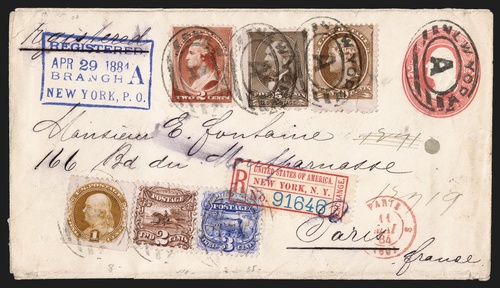 Registered
REGISTERED
APR 29 1884
BRANCH A
NEW YORK, P.O.
TWO 2 CENTS
NEW YO
A
Monsieur E. Fontaine
166 Bd du Montparnasse
R
UNITED STATES OF AMERICA.
NEW YORK, N.Y.
No. 91646
EXCHANGE
POSTAGE
1
POSTAGE
2
POSTAGE
3
PARIS
11
MAI
84
Paris
france